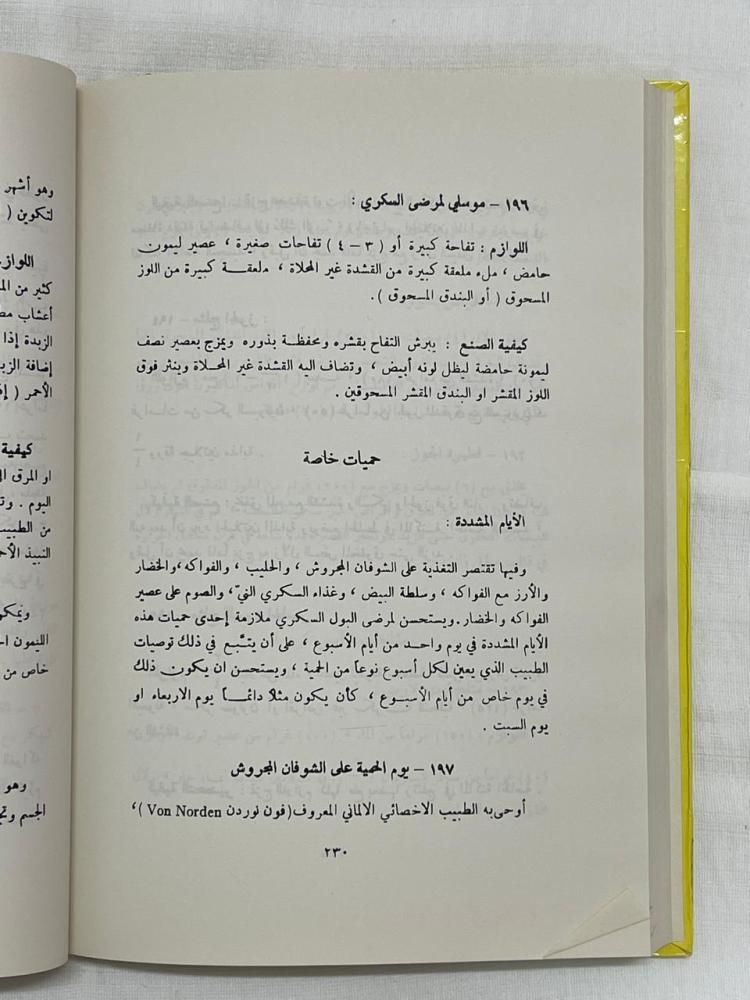 ١٩٦ – موسلي لمرضى السكري :
اللوازم : تفاحة كبيرة أو ( ٣ – ٤ ) تفاحات صغيرة ، عصير ليمون
حامض ، ملء ملعقة كبيرة من القشدة غير المحلاة ، ملعقة كبيرة من اللوز
المسحوق ( أو البندق المسحوق ) .
كيفية الصنع : يبرش التفاح بقشره ومحفظة بذوره ويمزج بعصير نصف
ليمونة حامضة ليظل لونه أبيض ، وتضاف اليه القشدة غير المحلاة وينثر فوق
اللوز المقشر او البندق المقشر المسحوقين .
حميات خاصة
الأيام المشددة :
وفيها تقتصر التغذية على الشوفان المجروش ، والحليب ، والفواكه ،والخضار
والأرز مع الفواكه ، وسلطة البيض ، وغذاء السكري النيّ، والصوم على عصير
الفواكه والخضار .ويستحسن لمرضى البول السكري ملازمة إحدى حميات هذه
الأيام المشددة في يوم واحد من أيام الأسبوع ، على أن يتتّبع في ذلك توصيات
الطبيب الذي يعين لكل أسبوع نوعاً من الحمية ، ويستحسن ان يكون ذلك
في يوم خاص من أيام الأسبوع ، كأن يكون مثلاً دائماً يوم الاربعاء او
يوم السبت .
١٩٧ – يوم الحمية على الشوفان المجروش
أوحى به الطبيب الاخصائي الالماني المعروف (فون نوردن Von Norden )،
٢٣٠
وهو أشهر
لتكوين (
اللواز
كثير من الم
أعشاب مط
الزبدة إذا
إضافة الزبد
الأحمر ( إذ
كيفية
او المرق ال
اليوم . وت
من الطبيب
النبيذ الأح
ويمكن
الليمون ا
خاص من
وهو
الجسم وتج